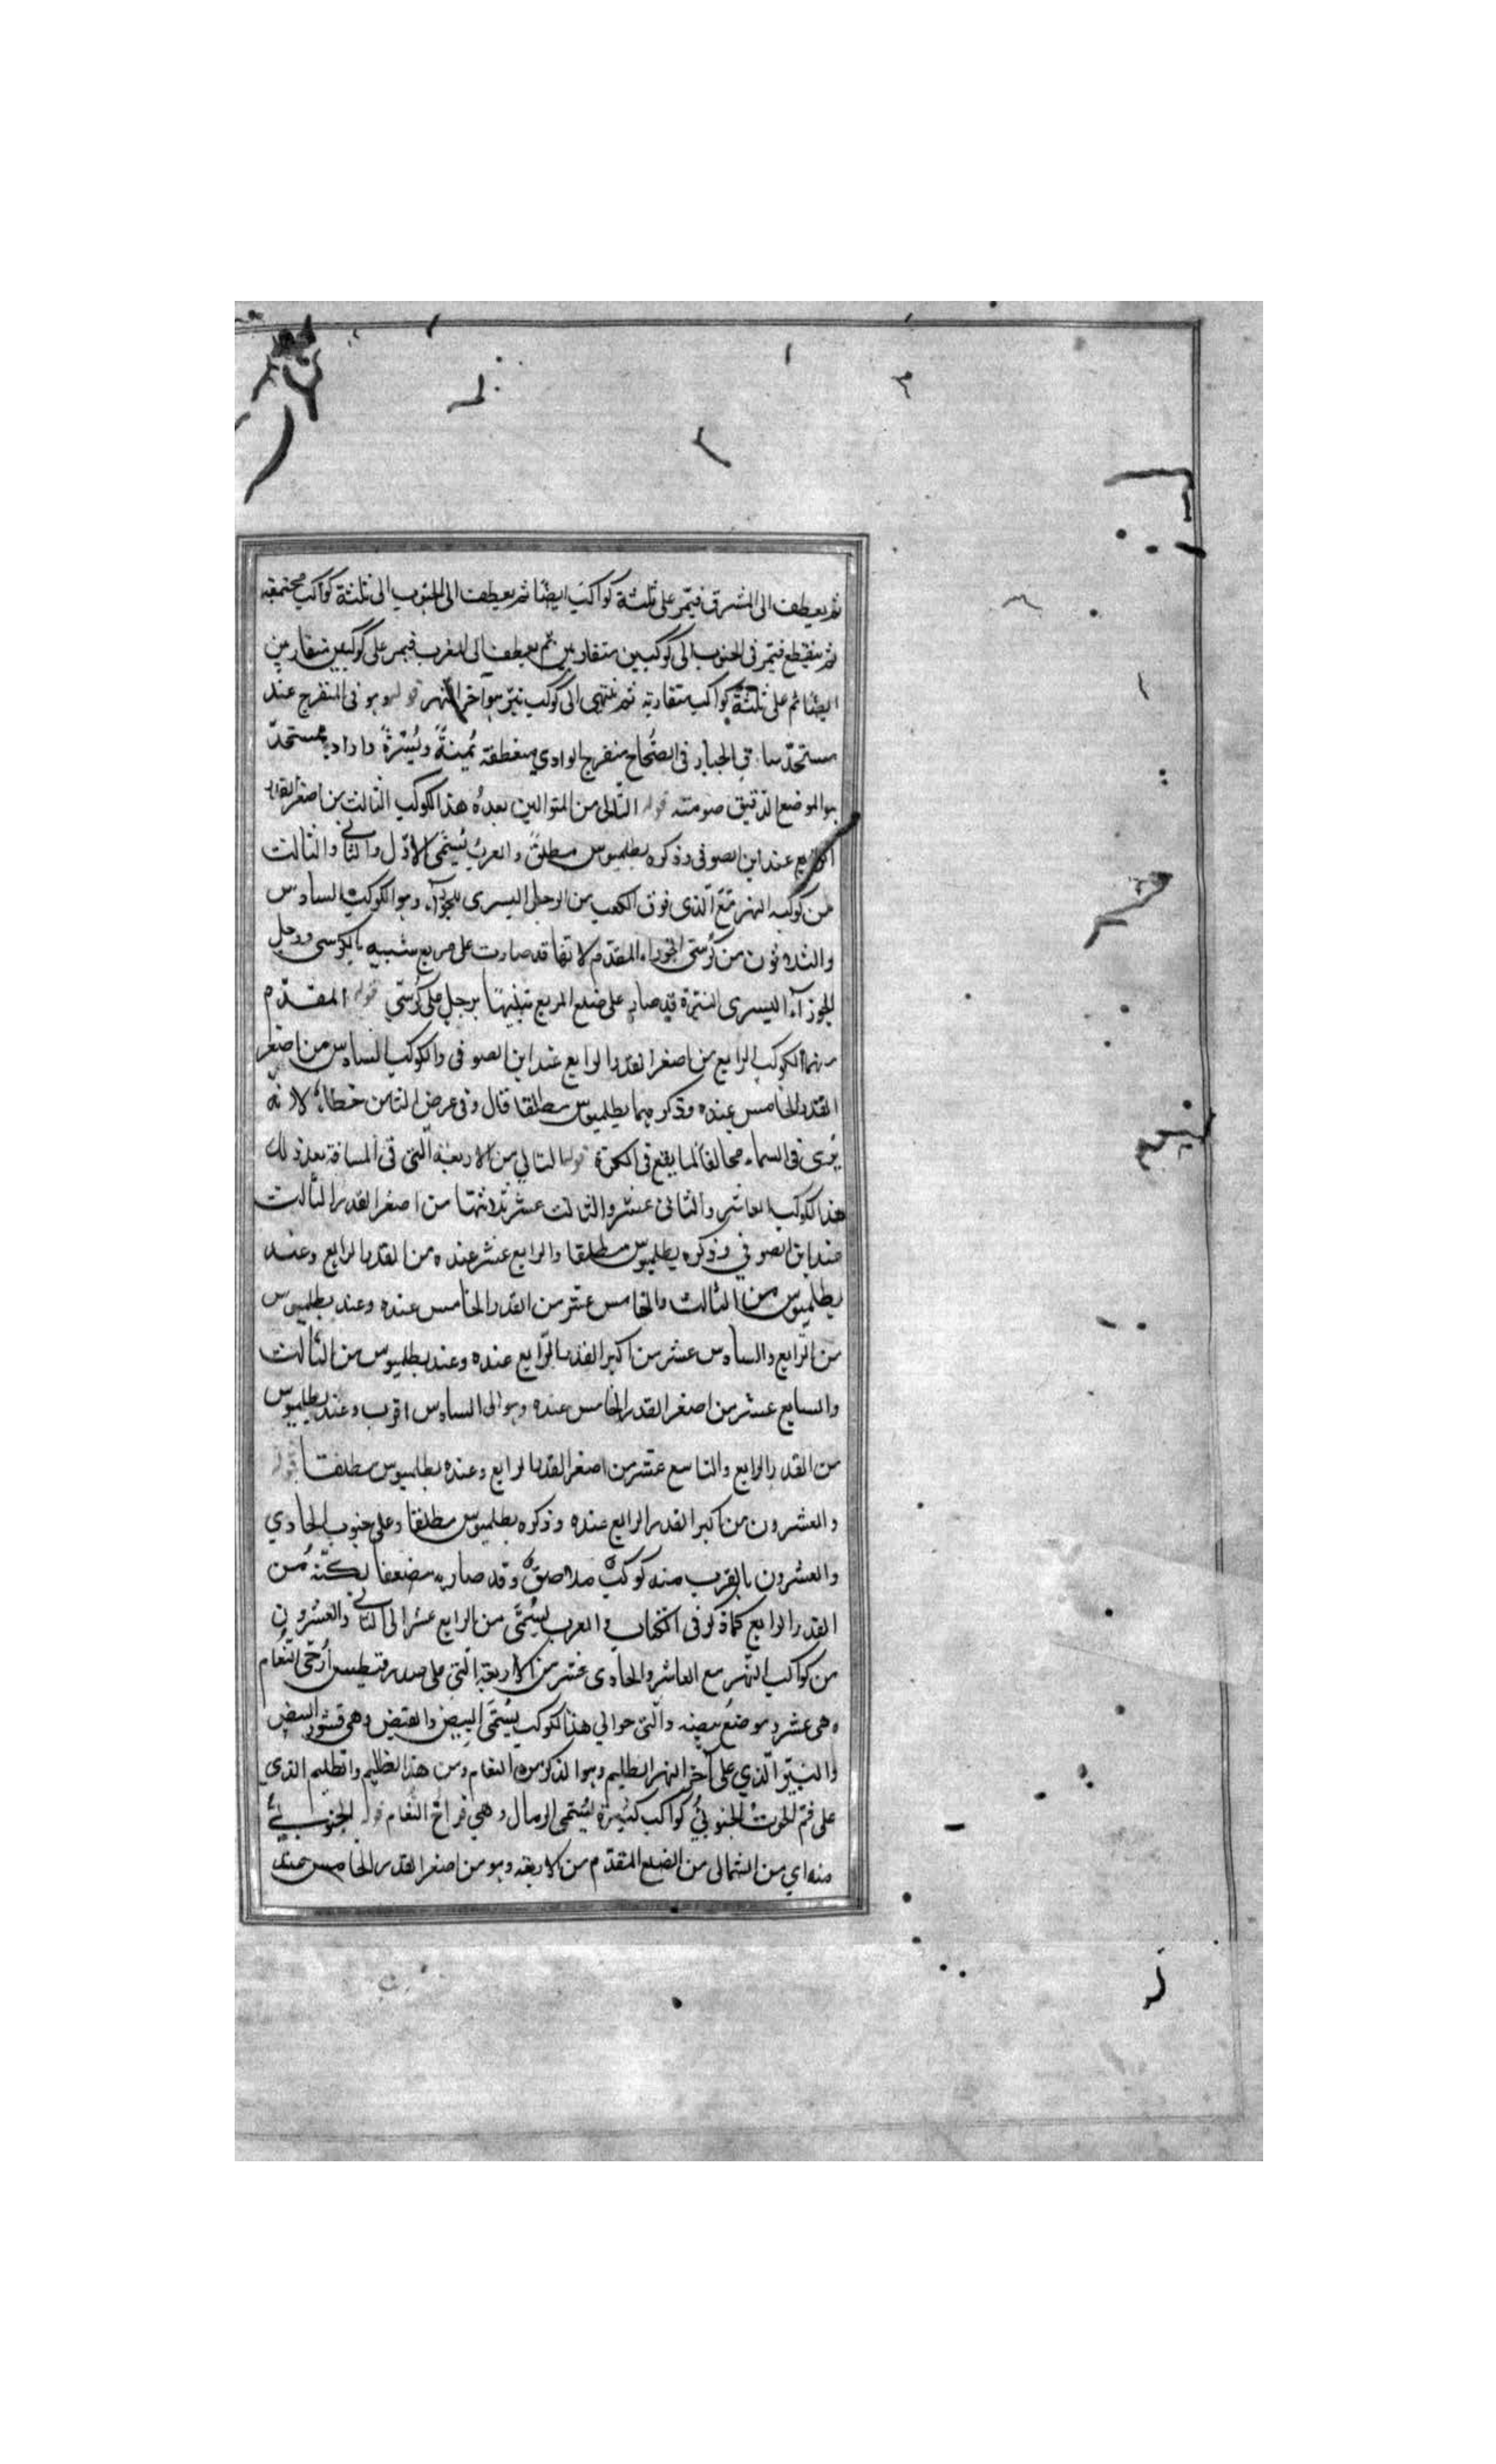 ثم يعطف الى المشرق فيمر على ثلثة كواكب ايضا ثم يعطف الى الجنوب الى ثلثة كواكب مجتمعة
ثم ينقطع فيمر فى الجنوب الى كوكبين متقاربين ثم يعطف الى المغرب فيمر على كوكبين متقاربين
ايضا ثم على ثلثة كواكب متقاربة ثم ينتهى الى كوكب نير هو آخر النهر قوله وهو فى المنفرج عند
فى الصحاح منفرج الوادى منعطفه يمنةً ويسرةً واراد
هو الموضع الدقيق قوله التالى من المتوالين بعده هذا الكوكب الثالث من اصغر القدر
الرابع عند ابن الصوفى وذكره بطلميوس مطلق والعرب يسمى الاول والثانى والثالث
من كوكبه النهر مع الذى فوق الكعب من الرجل اليسرى للجوزآء وهو الكوكب السادس
والثلاثون من كرسى الجوزاء المقدم لانها قد صارت على مربع شبيه بالكرسى ورجل
الجوزآء اليسرى النيرة قد صار على ضلع المربع تشبيها برجل على كرسى قوله المقدم
منهما الكوكب الرابع من اصغر القدر الرابع عند ابن الصوفى والكوكب السادس من اصغر
القدر الخامس عنده وذكرهما بطلميوس مطلقا قال وفى عرض الثامن خطاء لانه
يرى فى السماء مخالفا لما يقع فى الكرة قوله التالي من الاربعة التى فى المسافة بعد ذلك
هذا الكوكب العاشر والثانى عشر والثالث عشر ثلاثتها من اصغر القدر الثالث
عند ابن الصوفي وذكره بطلميوس مطلقا والرابع عشر عنده من القدر الرابع وعند
بطلميوس من الثالث والخامس عشر من القدر الخامس عنده وعند بطلميوس
من الرابع والسادس عشر من اكبر القدر الرابع عنده وعند بطلميوس من الثالث
والسابع عشر من اصغر القدر الخامس عنده وهو الى السادس اقرب وعند بطلميوس
من القدر الرابع والتاسع عشر من اصغر القدر الرابع وعنده بطلميوس مطلقا قوله
والعشرون من اكبر القدر الرابع عنده وذكره بطلميوس مطلقا وعلى جنوب الحادي
والعشرون بالقرب منه كوكب ملاصق وقد صار به مضعفا لكنه من
القدر الرابع كما ذكر فى الكتاب والعرب يسمى من الرابع عشر الى الثانى والعشرون
من كواكب النهر مع العاشر والحادى عشر من الاربعة التى على صدر قيطس ادحى النعام
وهى عشر وموضع بيضه والتى حوالي هذا الكوكب يسمى البيض والقيض وهى قشور البيض
والنير الذي على آخر النهر الظليم وهو الذكر من النعام ومن هذا الظليم والظليم الذى
على فم الحوت الجنوبي كواكب كثيرة يسمى الرمال وهي فراخ النعام قوله الجنوبي
منه اي من الشمالى من الضلع المتقدم من الاربعة وهو من اصغر القدر الخامس عند